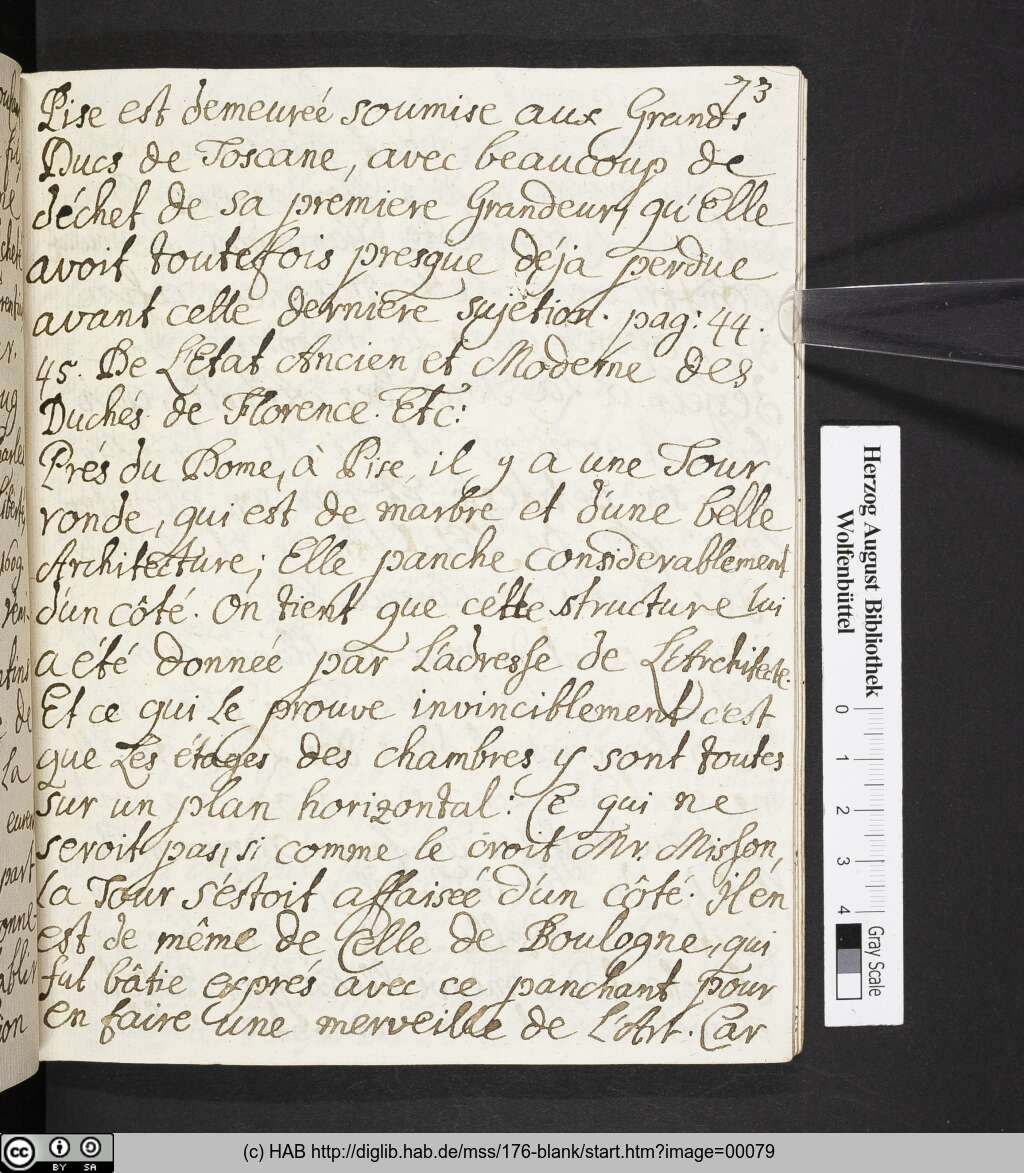 73
Pise est demeureé soumise aux Grands
Ducs de Toscane, avec beaucoup de
déchet de sa premiere Grandeur, qu'Elle
avoit toutefois presque déja perdue
avant cette derniere sujetion. pag: 44.
45. De L'Etat Ancien et Moderne des
Duchés de Florence. Etc:
Prés du Dome, à Pise, il y a une Tour
ronde, qui est de marbre et d'une belle
Architecture; Elle panche considerablement
d'un côté. On tient que cétte structure lui
a été donneé par L'adresse de L'Architecte.
Et ce qui le prouve invinciblement c'est
que Les étages des chambres y sont toutes
sur un plan horizontal: Ce qui ne
seroit pas, si comme le croit Mr. Misson,
la Tour s'éstoit affaiseé d'un côté. Il én
est de même de Celle de Boulogne, qui
fut bâtie exprés avec ce panchant pour
en faire une merveille de L'Art. Car
Herzog August Bibliothek
Wolfenbüttel
0 1 2 3 4
Gray Scale
cc BY SA
(c) HAB http://diglib.hab.de/mss/176-blank/start.htm?image=00079